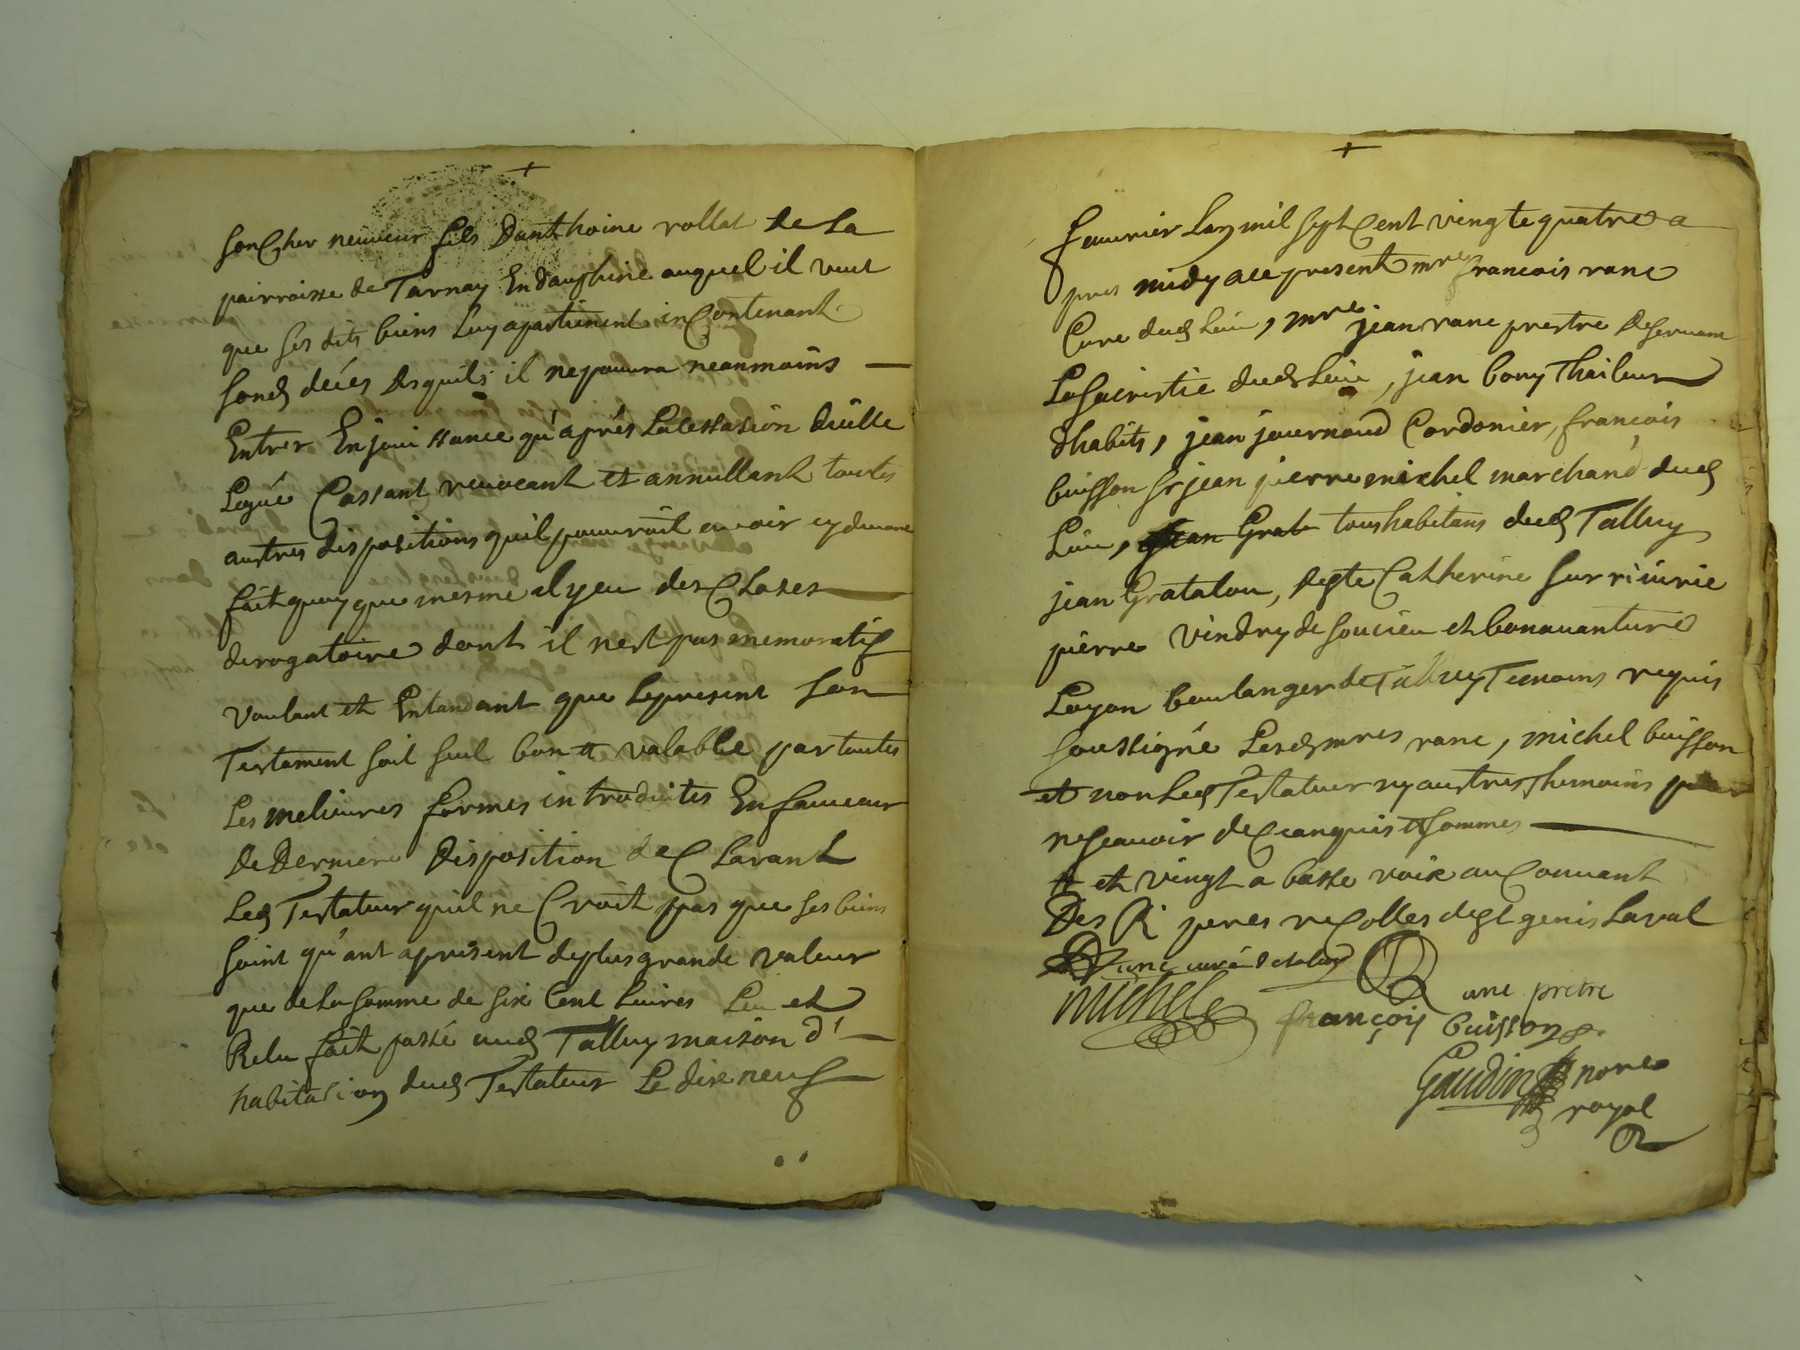 +
son cher neuveur fils Danthoine rollat de la
pairroisse de Tarnay En dauphine auquel il veut
que ses dits biens luy apartienent in Contenant
son deces desquels il ne pourra neanmoins —
Entrer En joui ssance qu'aprés la cessasion
Cassant revocant et annullant toutes
autres dispositions quil pourroit avoir cy devant
fait quoy que mesme il y eu des Clases
derogatoire dont il nest pas memoratif
voulant et Entandant que le present son
Testament soit seul bon et valable par toutes
Les melieures formes introduites En faveur
De Derniere Disposition declarant
Led Testateur quil ne Croit pas que ses biens
soint qu'ant apresent de plus grande valeur
que de la somme de six Cent Livres Leu et
Relu fait passé aud Talluy maison d'
habitasion dud Testateur Le dix neuf
+
feuvrier Lan mil sept Cent vingte quatre a
pres midy a ce present mre francois ranc
Cure dud Lieu, mre jean ranc prestre Deservant
La sacristie dud Lieu, jean bory Thaileur
dhabits, jean journoud Cordonier, francois
buisson sr jean pierre michel marchand dud
Lieu, jean Grat tous habitans dud Talluy
jean Gratalou, de ste Catherine sur riverie
pierre vindry de soucieu et bonavanture
Layon boulanger de Talluy Temoins requis
soussigné Lesd mres ranc, michel buisson
et non Led Testateur ny autres Themoins pour
ne scavoir de ce anquis et sommes —
et vingt a basse voix au Couvant
Des R peres recolles de st genis Laval
Ranc curé de taluy
Ranc pretre
michel
françois buisson
Gaudin nore
royal